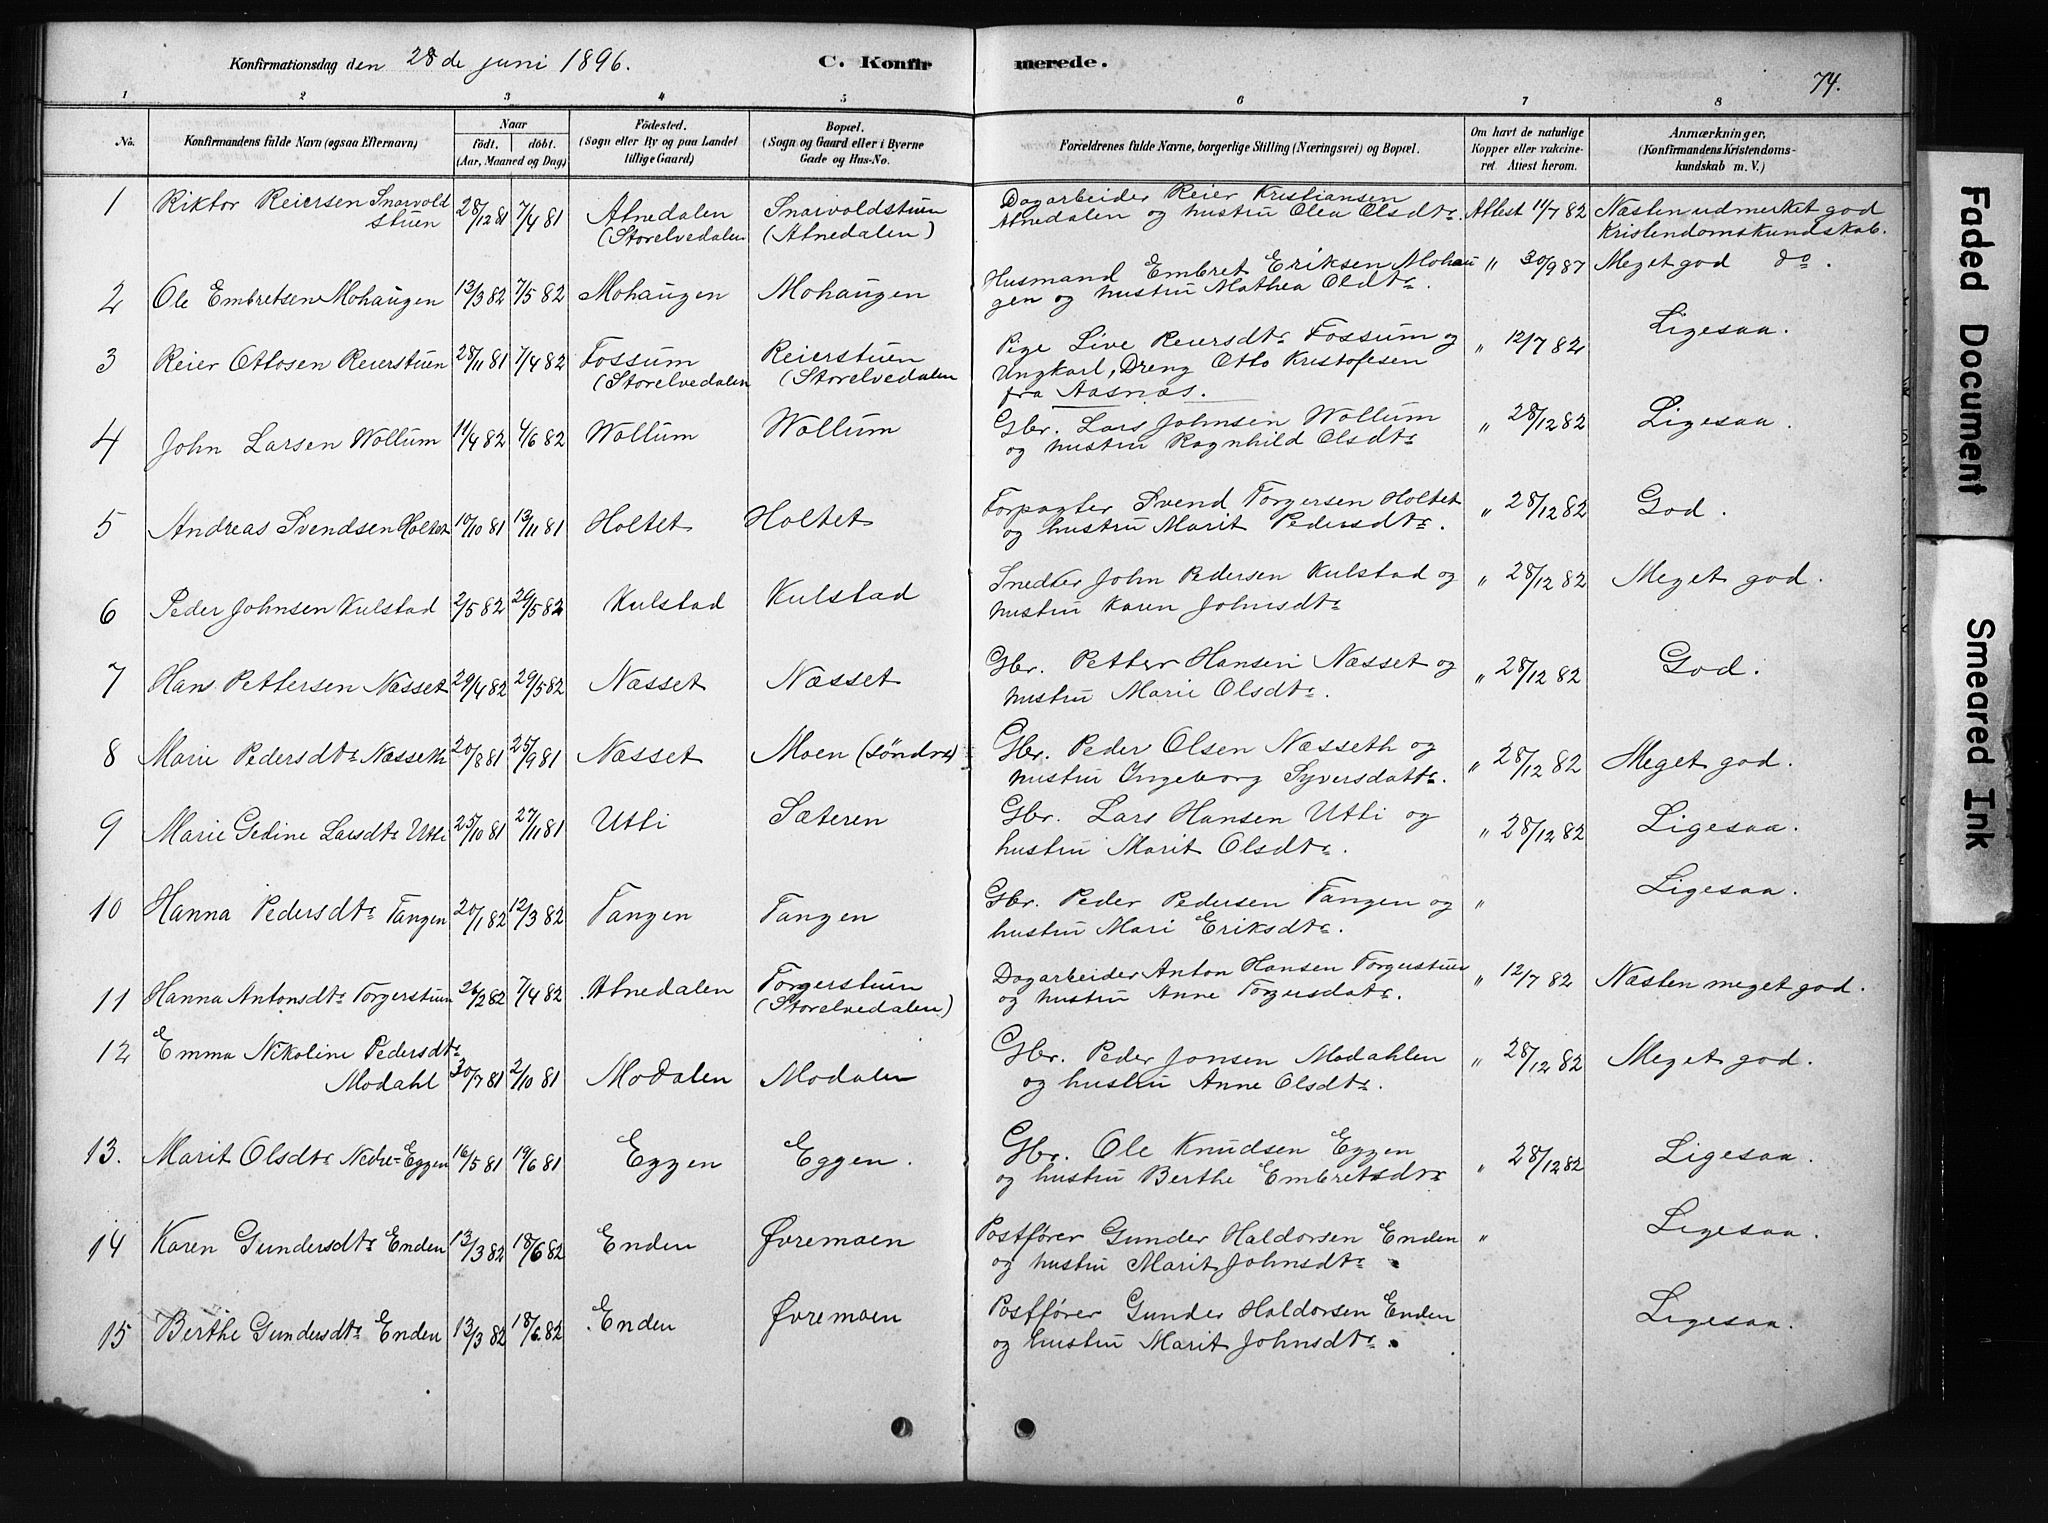 Konfirmationsdag den 28de juni 1896.
C. Konfir merede.
74.
1 2 3 4 5 6 7 8
No.
Konfirmandens fulde Navn (ogsaa Efternavn)
Naar
födt. döbt.
(Aar, Maaned og Dag)
Födested.
(Sogn eller By og paa Landet
tillige Gaard)
Bopæl.
(Sogn og Gaard eller i Byerne
Gade og Hus-No.
Forældrenes fulde Navne, borgerlige Stilling (Næringsvei) og Bopæl.
Om havt de naturlige
Kopper eller vakcine-
ret. Attest herom.
Anmærkninger,
(Konfirmandens Kristendoms-
kundskab m. V.)
1 Riktor Reiersen Snarvold 28/12 81 7/4 81 Atnedalen Snarvoldstuen Dagarbeider Reier Kristiansen Attest 11/7 82 Næsten udmerket god
stuen (Storelvedalen (Atnedalen) Atnedalen og hustru Olea Olsdtr. Kristendomskundskab.
2 Ole Embretsen Mohaugen 13/3 82 7/5 82 Mohaugen Mohaugen Husmand Embret Eriksen Mohau " 30/9 87 Meget god do.
gen og hustru Mathea Oldtr.
3 Reier Ottosen Reierstuen 28/11 81 7/4 82 Fossum Reierstuen Pige Live Reiersdtr Fossum og " 12/7 82 Ligesaa.
(Storelvedalen (Storelvedalen Ungkarl, Dreng Otto Kristofesen
fra Aasnæs.
4 John Larsen Wollum 11/4 82 4/6 82 Wollum Wollum Gbr. Lars Johnsen Wollum " 28/12 82 Ligesaa.
og hustru Ragnhild Olsdtr
5 Andreas Svendsen Holtet 10/10 81 13/11 81 Holtet Holtet Forpagter Svend Torgersen Holtet " 28/12 82 God.
og hustru Marit Pedersdtr.
6 Peder Johnsen Kulstad 2/5 82 29/5 82 Kulstad Kulstad Snedker John Pedersen Kulstad og " 28/12 82 Meget god.
hustru Karen Johnsdtr
7 Hans Pettersen Næsset 29/4 82 29/5 82 Næsset Næsset Gbr. Petter Hansen Næsset og " 28/12 82 God.
hustru Marie Olsdtr.
8 Marie Pedersdtr Næsseth 20/8 81 25/9 81 Næsset Moen (söndre) Gbr. Peder Olsen Næsseth og " 28/12 82 Meget god.
hustru Ingeborg Syversdattr.
9 Marie Gedine Larsdtr Utti 25/10 81 27/11 81 Utti Sæteren Gbr. Lars Hansen Utti og " 28/12 82 Ligesaa.
hustru Marit Olsdtr.
10 Hanna Pedersdtr Tangen 20/1 82 12/3 82 Tangen Tangen Gbr. Peder Pedersen Tangen og " Ligesaa.
hustru Mari Eriksdtr.
11 Hanna Antonsdtr Torgerstuen 26/2 82 7/4 82 Atnedalen Torgerstuen Dagarbeider Anton Hansen Torgerstuen " 12/7 82 Næsten meget god.
(Storelvedalen) og hustru Anne Torgersdatr.
12 Emma Nikoline Pedersdtr
Modahl 30/7 81 2/10 81 Modalen Modalen Gbr. Peder Jonsen Modahlen " 28/12 82 Meget god.
og hustru Anne Olsdtr.
13. Marit Olsdtr Nedre-Eggen 16/5 81 19/6 81 Eggen Eggen. Gbr. Ole Knudsen Eggen " 28/12 82 Ligesaa.
og hustru Berthe Embretsdtr
14 Karen Gundersdtr Enden 13/3 82 18/6 82 Enden Øvremoen Postfører Gunder Haldorsen Enden " Ligesaa.
og hustru Marit Johnsdtr.
15 Berthe Gundersdtr Enden 13/3 82 18/6 82 Enden Øvremoen Postfører Gunder Haldorsen Enden Ligesaa.
og hustru Marit Johnsdtr.
Faded Document
Smeared Ink